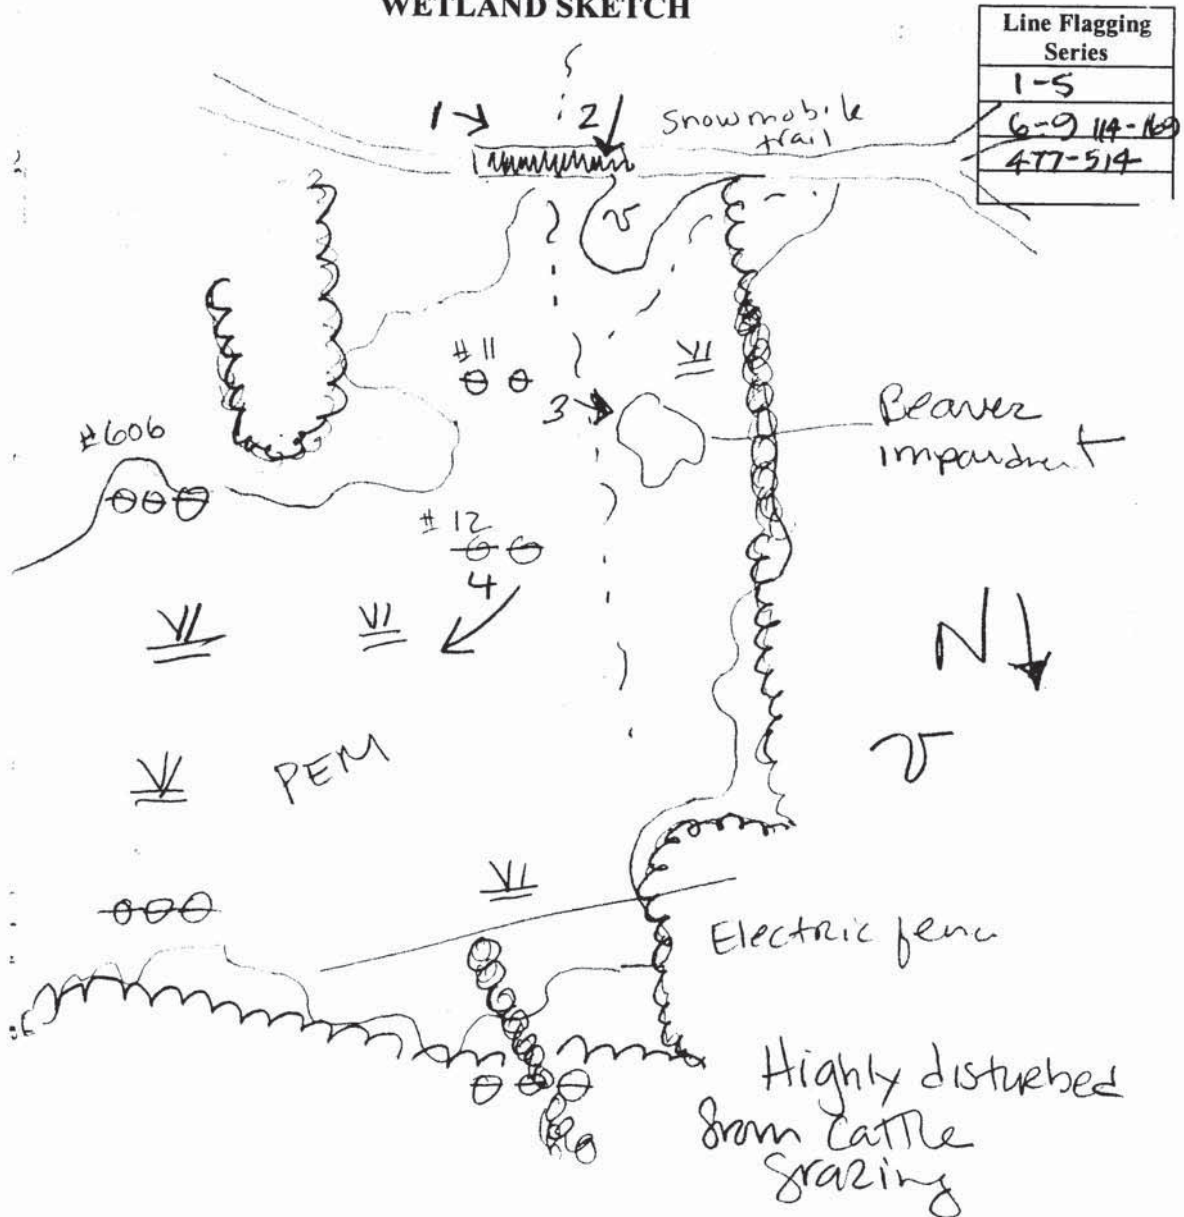 WETLAND SKETCH
Line Flagging
Series
1-5
6-9 114-169
477-514
1
2
Snowmobile
trail
v
#11
3
Beaver
impoundment
#606
#12
4
N
v
PEM
Electric fence
Highly disturbed
from Cattle
grazing